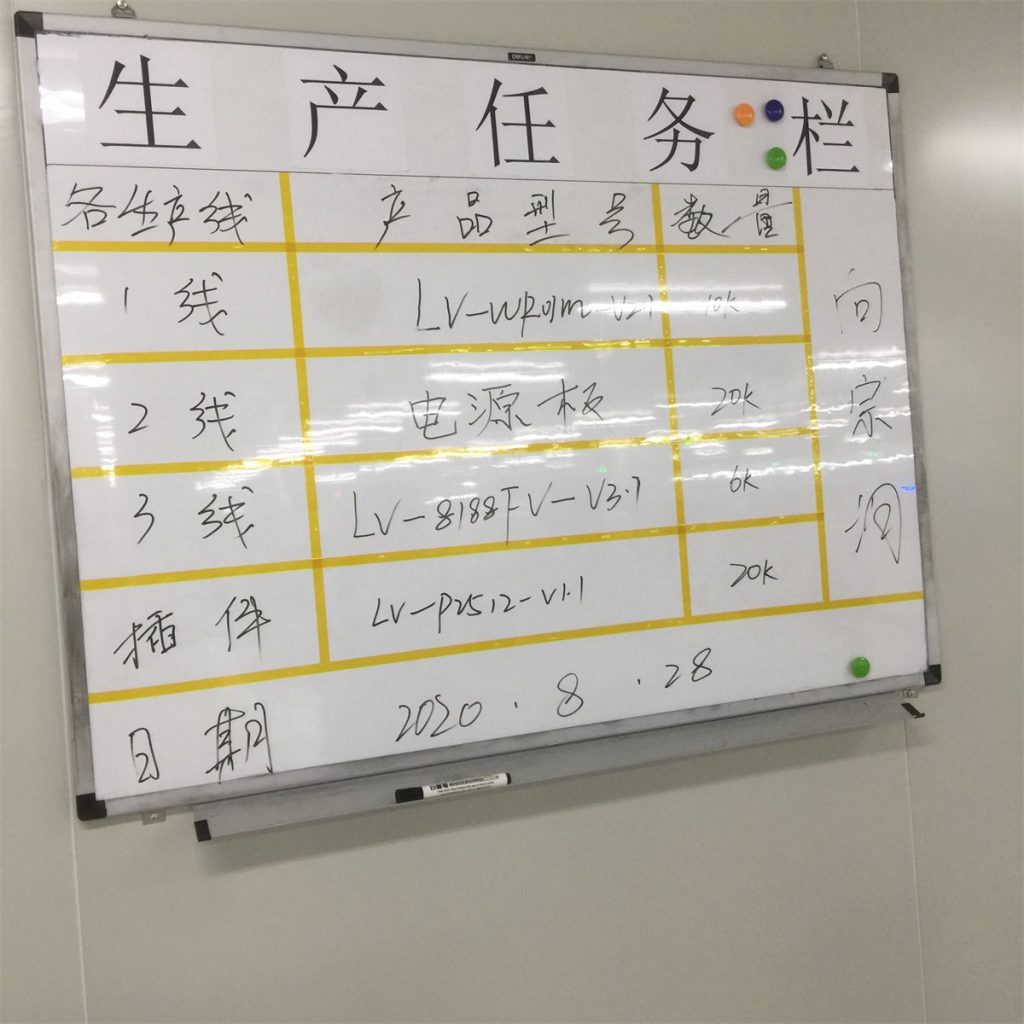 生产任务栏
各生产线 产品型号 数量
1线 LV-WR01m-V2.1 10K
2线 电源板 20K
3线 LV-8188FV-V3.1 6K
插件 LV-P2512-V1.1 20K
向宗润
日期 2020.8.28